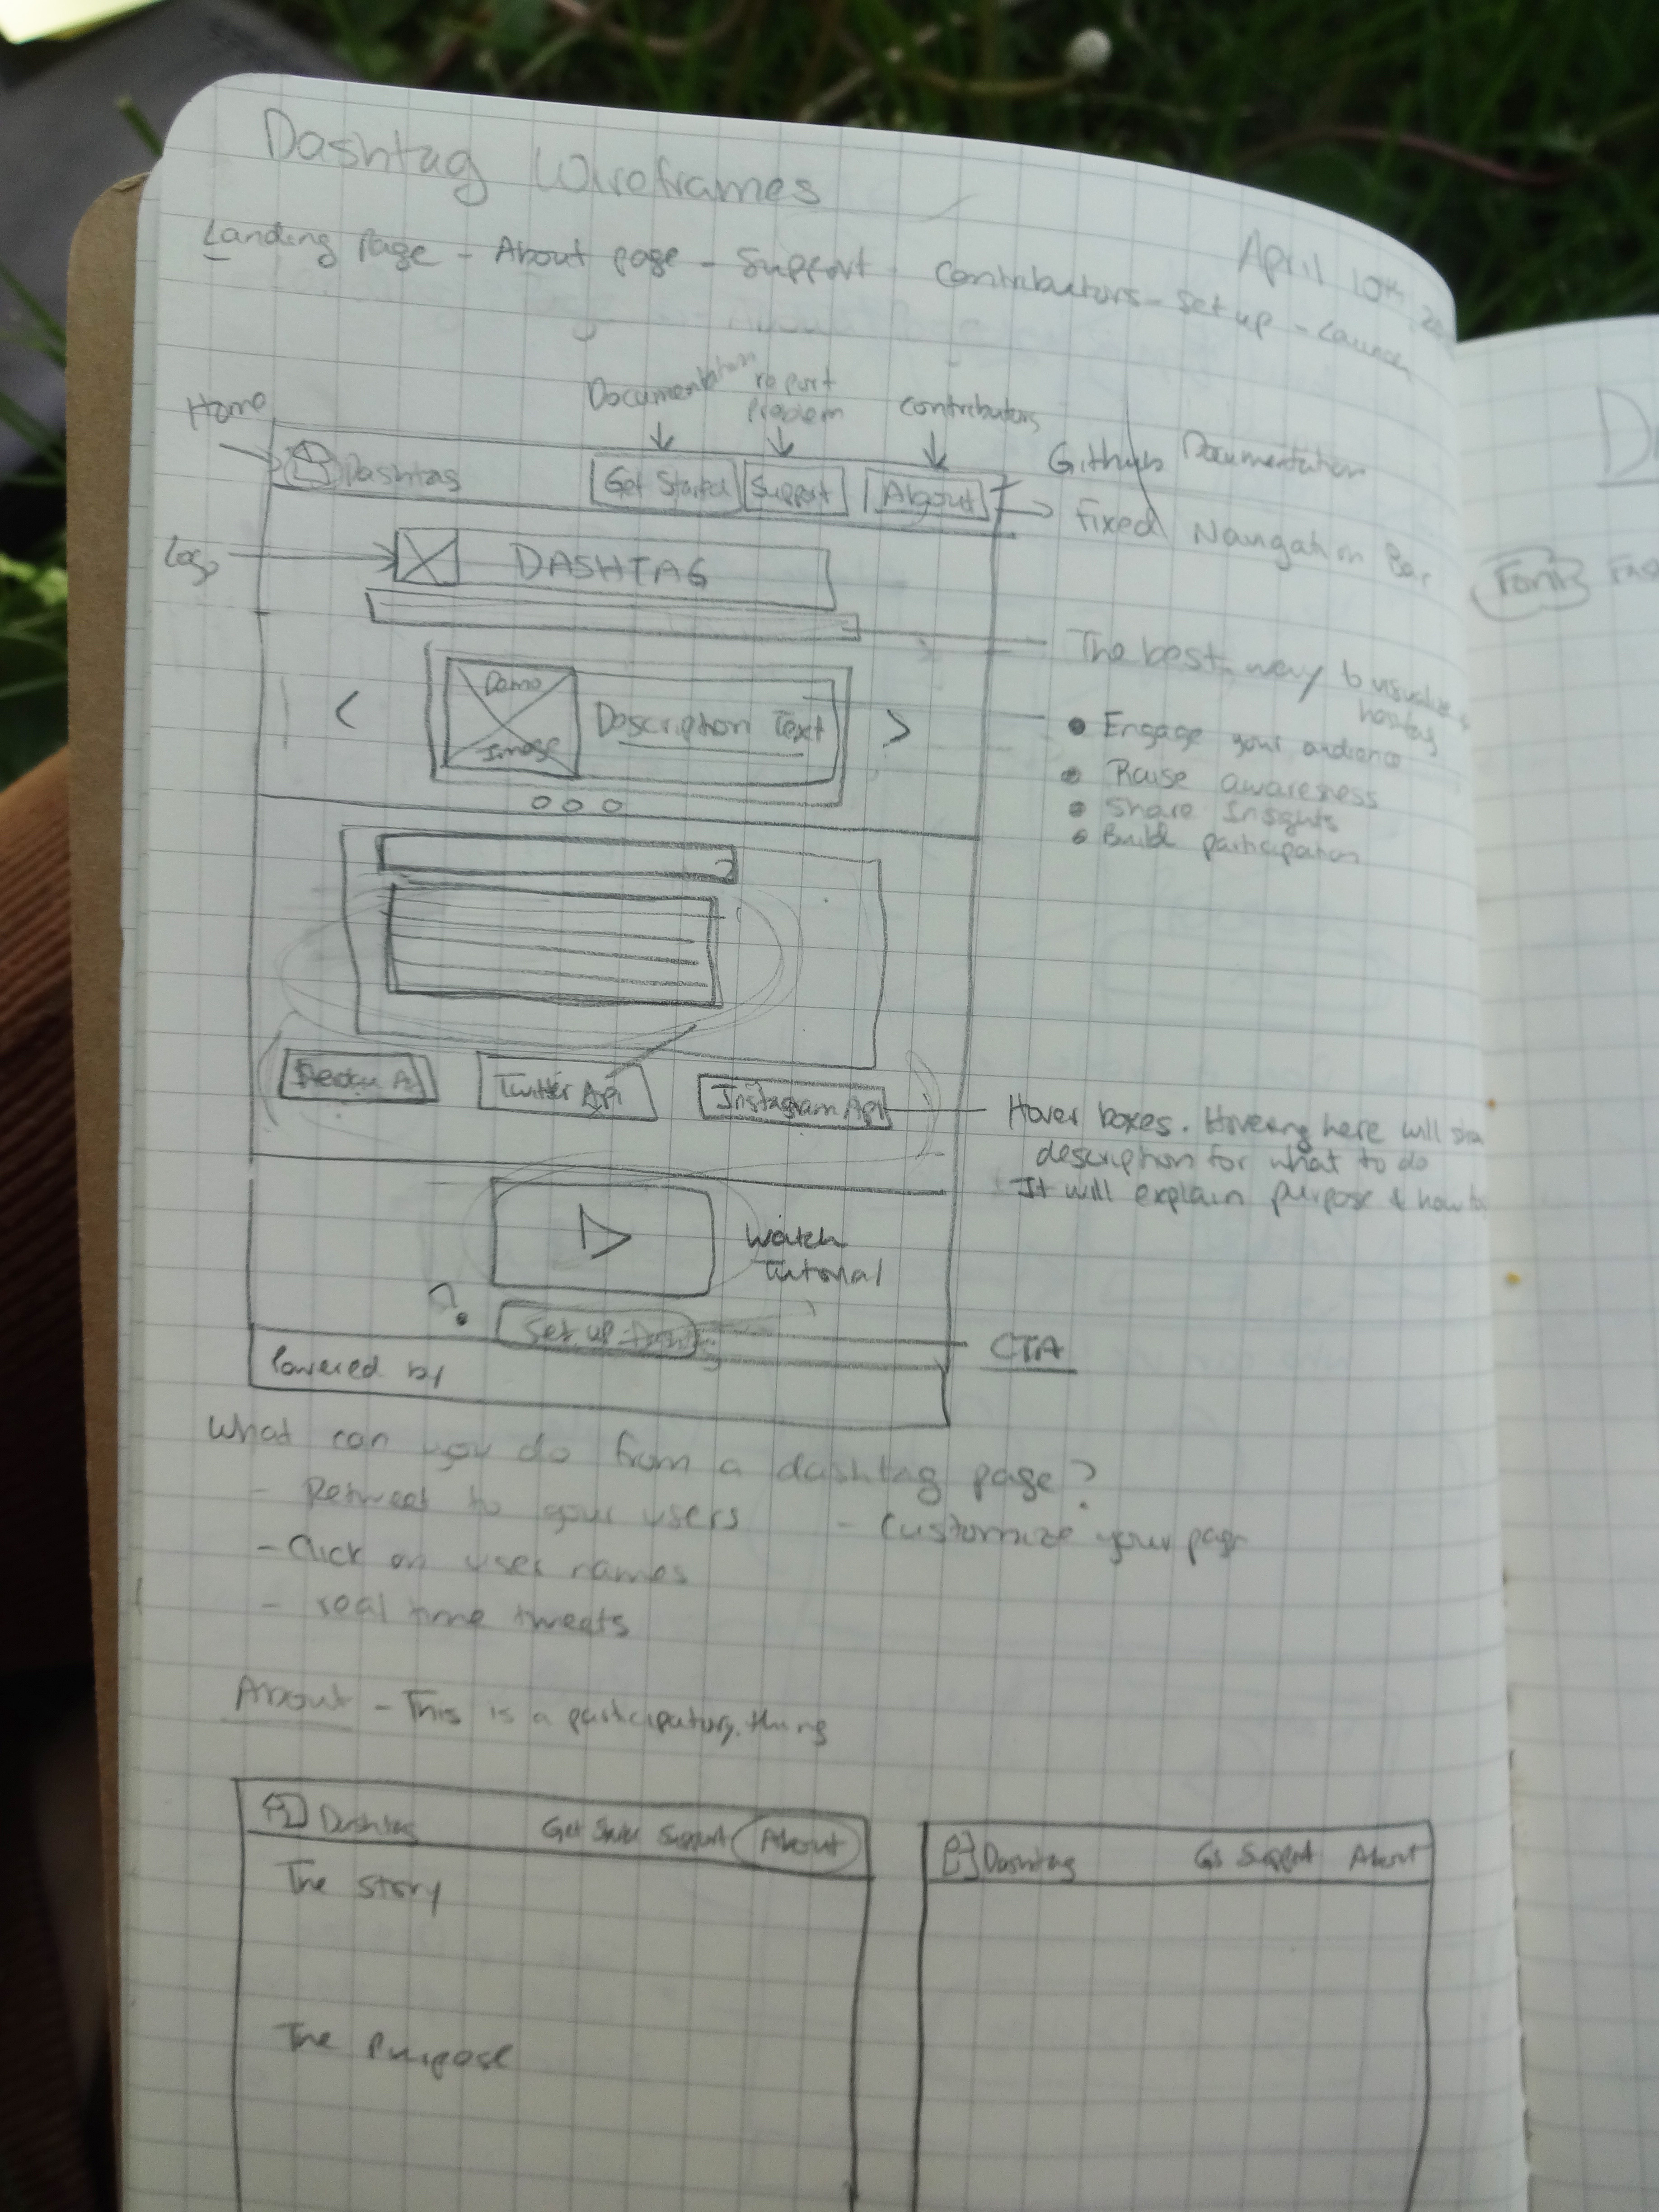 Dashtag Wireframes
April 10th
Landing Page - About page - Support - Contributors - Set up - Launch
Documentation
report problem
contributors
Home
Dashtag
Get Started
Support
About
Github Documentation
Fixed Navigation Bar
Logo
DASHTAG
The best way to visualize
hashtag
Demo
Image
Description Text
< >
• Engage your audience
• Raise awareness
• Share Insights
• Build participation
Twitter Api
Instagram Api
Hover boxes. Hovering here will
description for what to do
It will explain purpose & how to
Watch
Tutorial
?
Set up
CTA
Powered by
What can you do from a dashtag page?
- Retweet to your users
- Customize your page
- Click on user names
- real time tweets
About - This is a participatory thing
Dashtag
Support
About
The story
The Purpose
Dashtag
GS Support About
Font